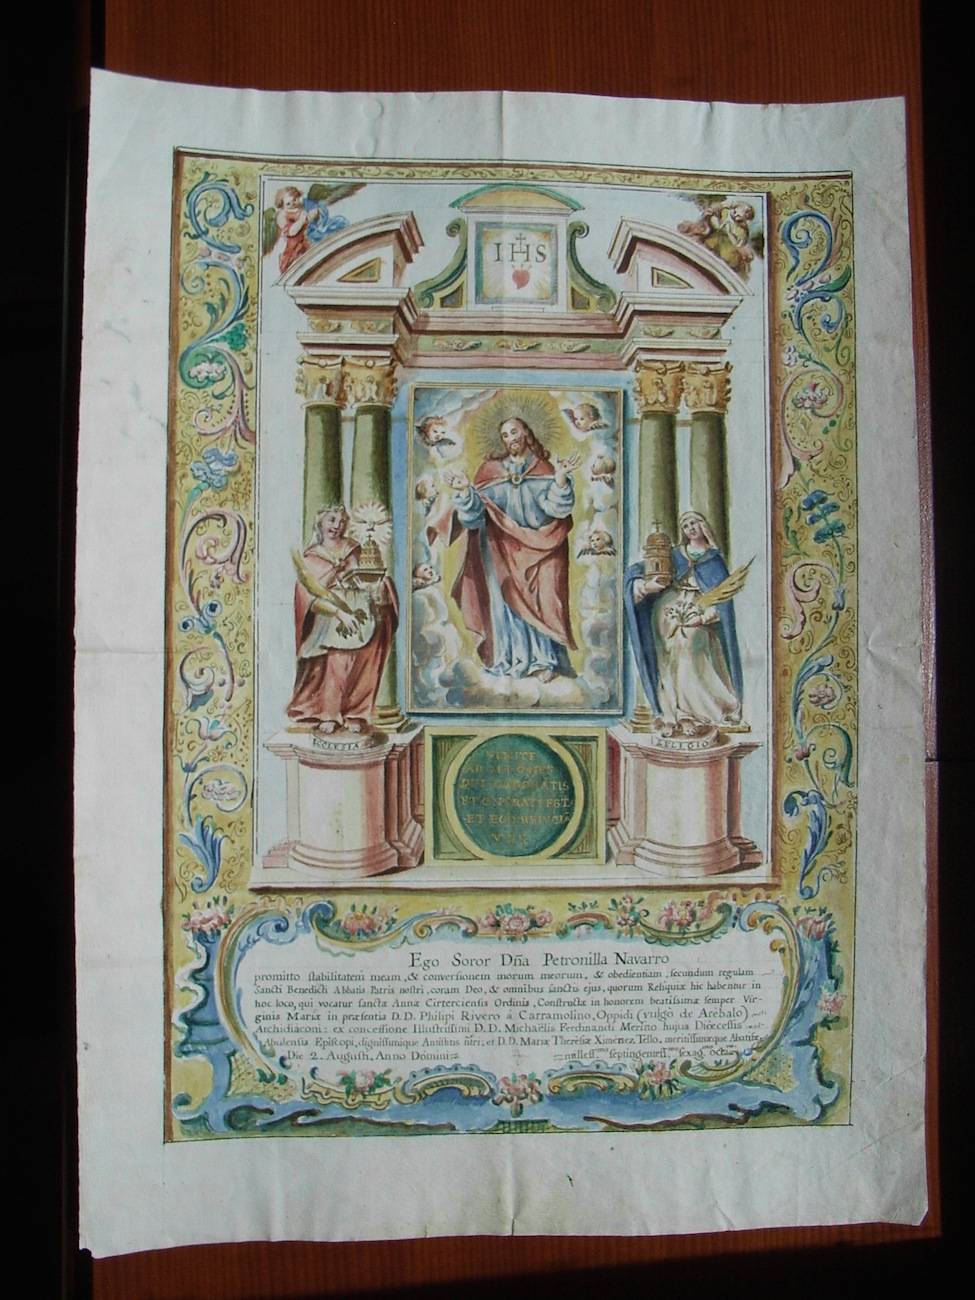 IHS
ECCLESIA
RELIGIO
VENITE
AD ME OMNES
QUI LABORATIS
ET ONERATI ESTIS
ET EGO REFICIA
VOS
Ego Soror Dña Petronilla Navarro
promitto stabilitatem meam, & conversionem morum meorum, & obedientiam, secundum regulam
Sancti Benedicti Abbatis Patris nostri, coram Deo, & omnibus sanctis ejus, quorum Reliquiæ hic habentur in
hoc loco, qui vocatur sanctæ Annæ Cirterciensis Ordinis, Constructæ in honorem beatissimæ semper Vir-
ginis Mariæ in præsentia D.D. Philipi Rivero á Carramolino, Oppidi (vulgò de Arébalo)
Archidiaconi: ex concessione Illustrissimi D.D. Michaëlis Ferdinandi Merino hujus Diœcessis
Abulensis Episcopi, dignissimique Antistitis ntri; et D.D. Mariæ Theresiæ Ximenez Tello, meritissimæque Abatissæ
Die 2. Augusti, Anno Domini millesi septingentess. sexag. octavo